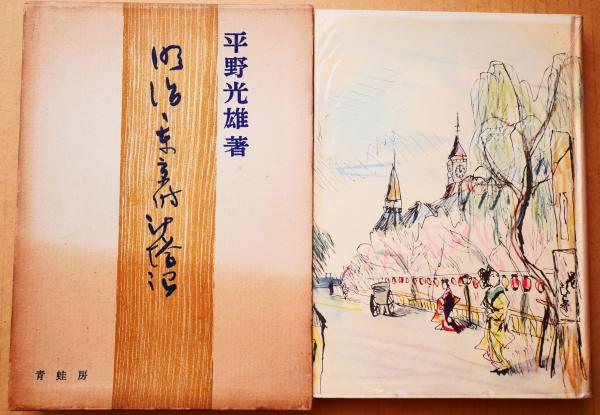 平野光雄著
明治・東京時計塔記
青蛙房